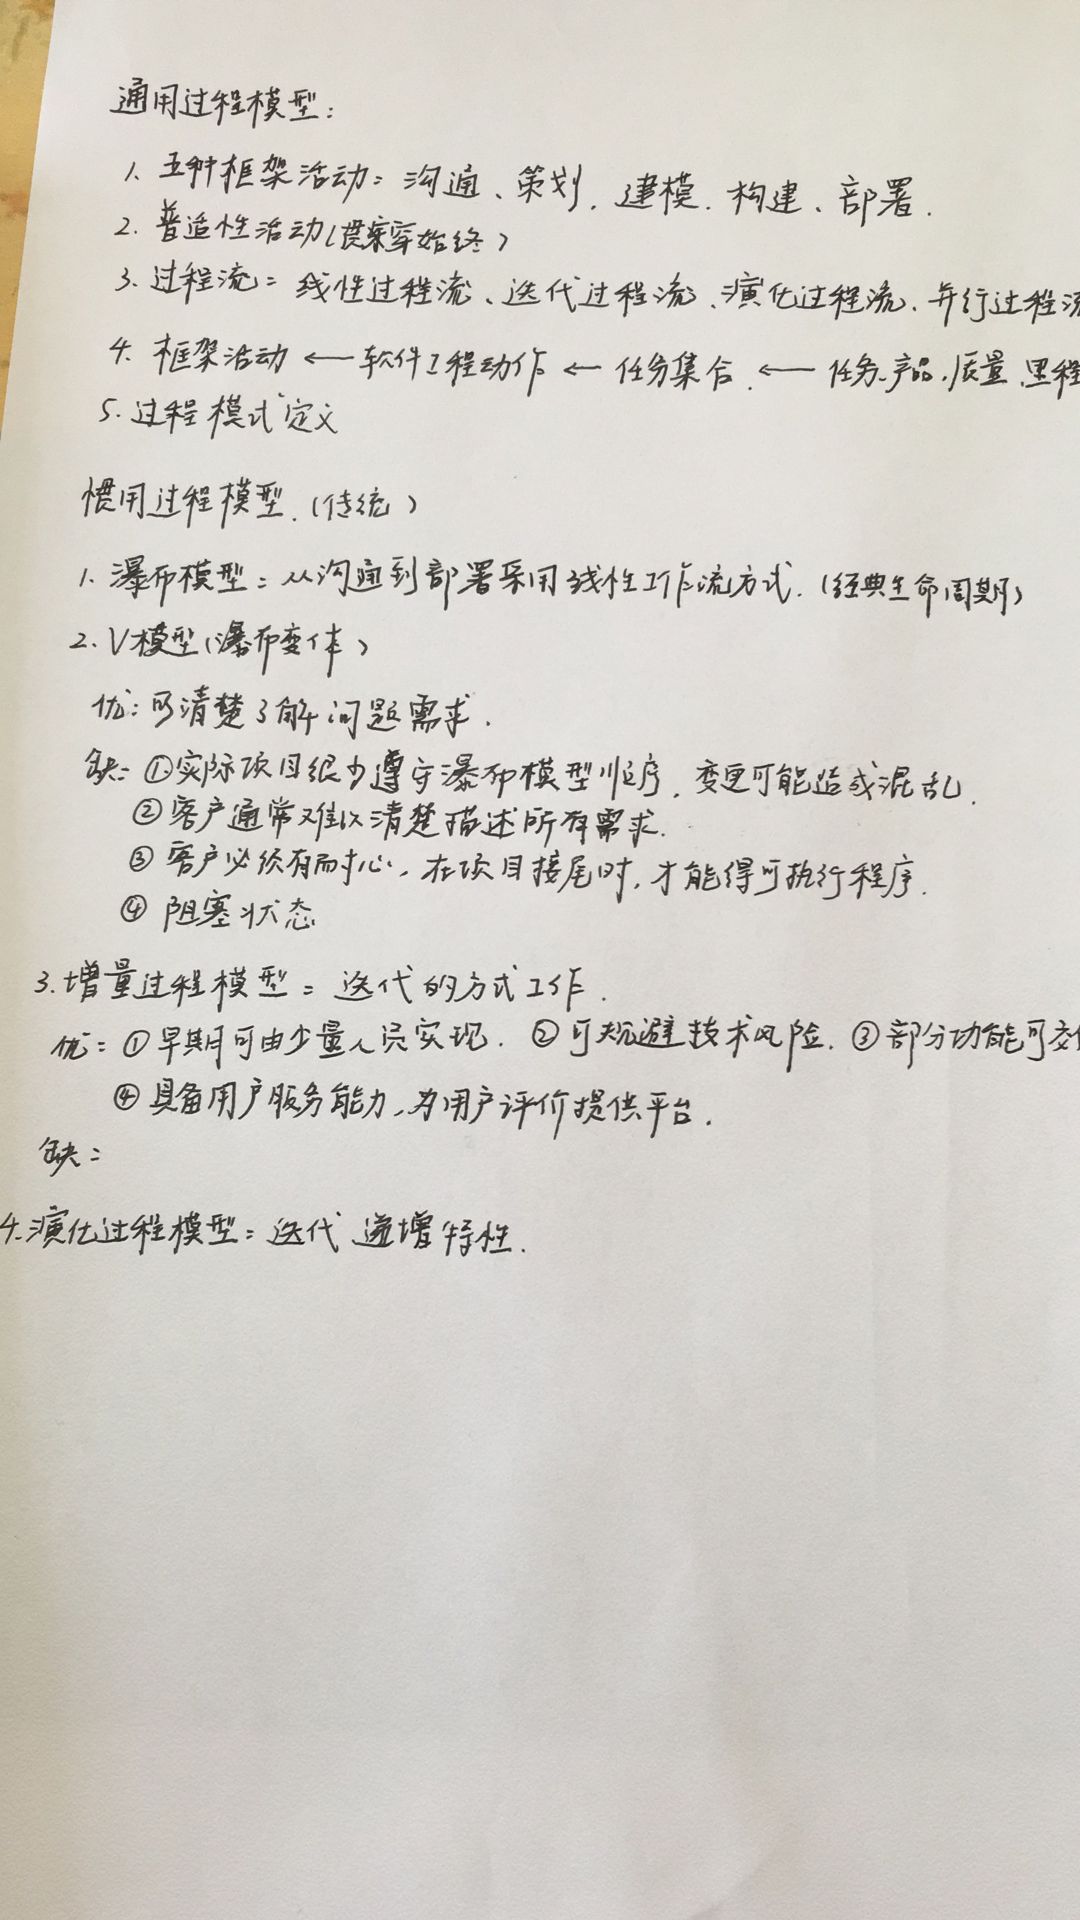 通用过程模型:
1. 五种框架活动: 沟通、策划、建模、构建、部署.
2. 普适性活动(贯穿始终)
3. 过程流: 线性过程流、迭代过程流、演化过程流、并行过程流
4. 框架活动 ← 软件工程动作 ← 任务集合 ← 任务、产品、质量、里程
5. 过程模式定义
惯用过程模型.(传统)
1. 瀑布模型: 从沟通到部署采用线性工作流方式.(经典生命周期)
2. V模型(瀑布变体)
优: 可清楚了解问题需求.
缺: ①实际项目很少遵守瀑布模型顺序, 变更可能造成混乱.
②客户通常难以清楚描述所有需求.
③客户必须有耐心, 在项目接尾时, 才能得可执行程序.
④阻塞状态
3. 增量过程模型: 迭代的方式工作.
优: ①早期可由少量人员实现. ②可规避技术风险. ③部分功能可交
④具备用户服务能力, 为用户评价提供平台.
缺:
4. 演化过程模型: 迭代、递增特性.